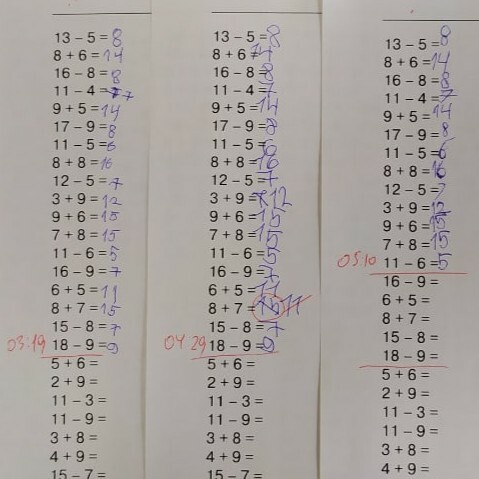 13 - 5 = 8
8 + 6 = 14
16 - 8 = 8
11 - 4 = 7
9 + 5 = 14
17 - 9 = 8
11 - 5 = 6
8 + 8 = 16
12 - 5 = 7
3 + 9 = 12
9 + 6 = 15
7 + 8 = 15
11 - 6 = 5
16 - 9 = 7
6 + 5 = 11
8 + 7 = 15
15 - 8 = 7
03:19 18 - 9 = 9
5 + 6 =
2 + 9 =
11 - 3 =
11 - 9 =
3 + 8 =
4 + 9 =
15 - 7 =
13 - 5 = 8
8 + 6 = 14
16 - 8 = 8
11 - 4 = 7
9 + 5 = 14
17 - 9 = 8
11 - 5 = 6
8 + 8 = 16
12 - 5 = 7
3 + 9 = 12
9 + 6 = 15
7 + 8 = 15
11 - 6 = 5
16 - 9 = 7
6 + 5 = 11
8 + 7 =
15 - 8 = 7
04 29 18 - 9 = 9
5 + 6 =
2 + 9 =
11 - 3 =
11 - 9 =
3 + 8 =
4 + 9 =
15 - 7 =
13 - 5 = 8
8 + 6 = 14
16 - 8 = 8
11 - 4 = 7
9 + 5 = 14
17 - 9 = 8
11 - 5 = 6
8 + 8 = 16
12 - 5 = 7
3 + 9 = 12
9 + 6 = 15
7 + 8 = 15
05:10 11 - 6 = 5
16 - 9 =
6 + 5 =
8 + 7 =
15 - 8 =
18 - 9 =
5 + 6 =
2 + 9 =
11 - 3 =
11 - 9 =
3 + 8 =
4 + 9 =